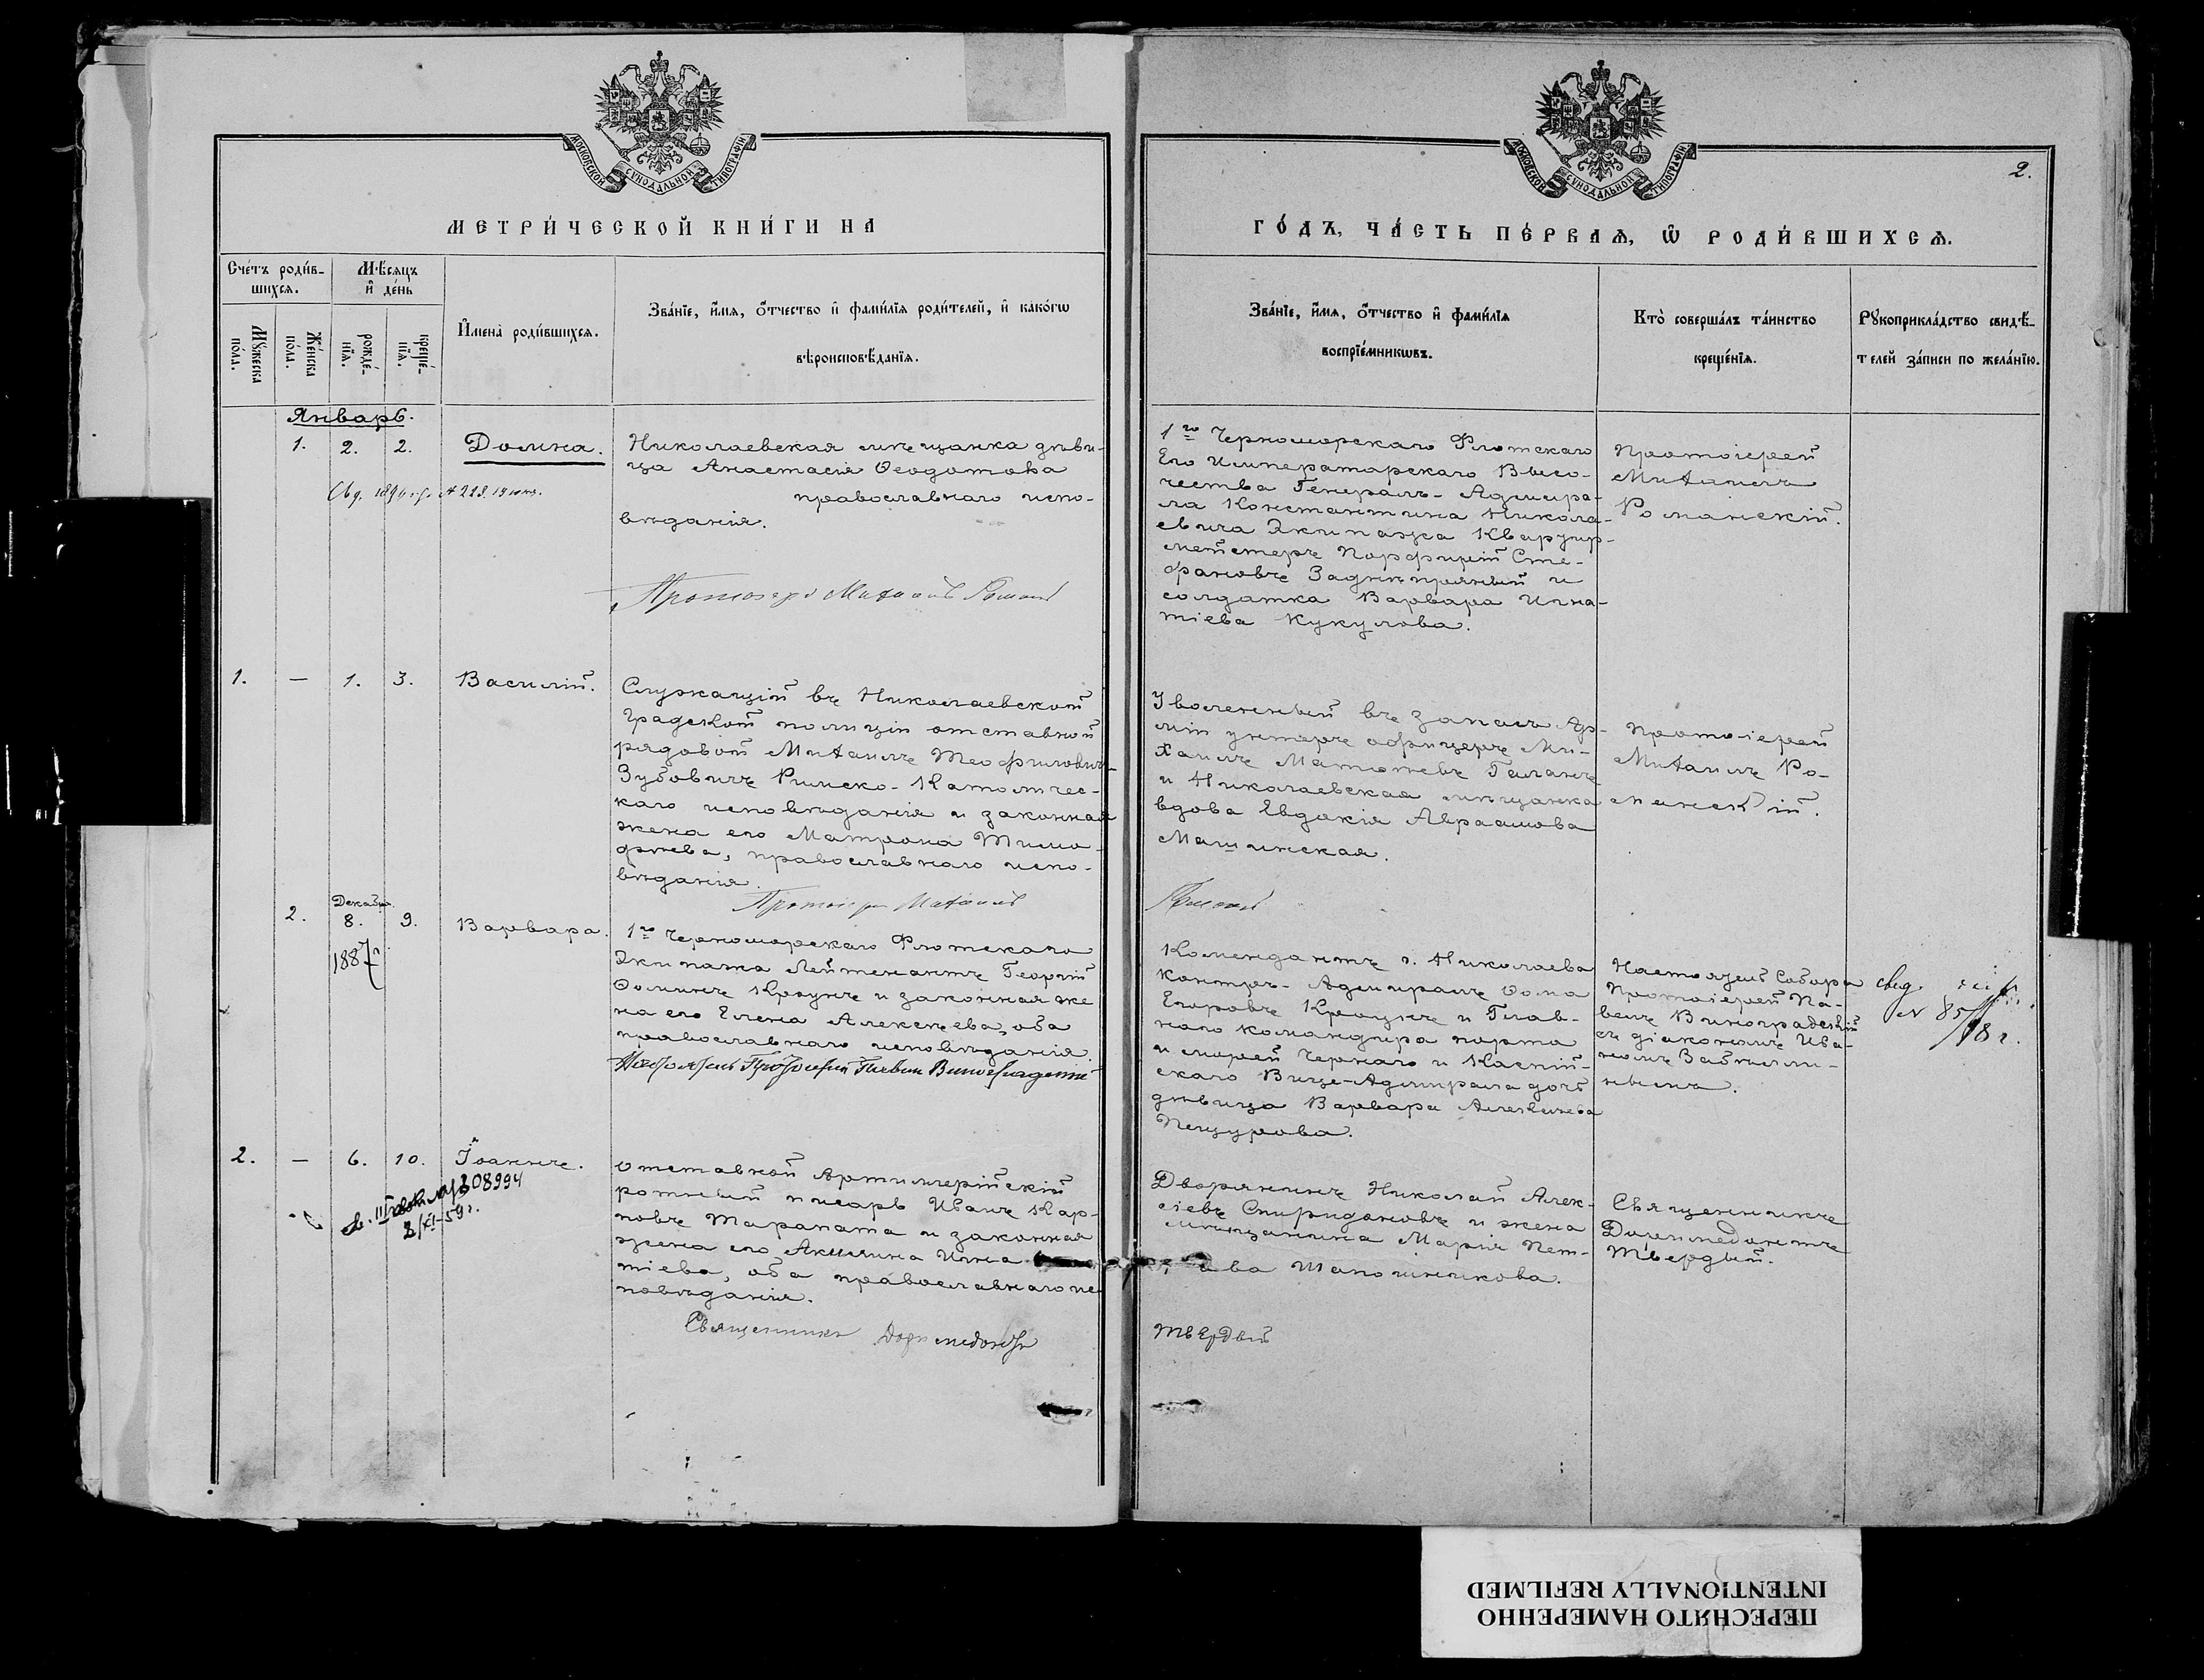 МОСКОВСКОЙ СУНОДАЛЬНОЙ ТИПОГРАФІИ
МЕТРИ́ЧЕСКОЙ КНИ́ГИ НА
Сче́тъ роди́в-
шихсѧ.
Мѣ́сѧцъ
и҆ де́нь
Мꙋ́жеска
по́ла.
Же́нска
по́ла.
рожде́-
нїѧ.
креще́-
нїѧ.
И҆мена̀ роди́вшихсѧ.
Зва́нїе, и҆́мѧ, ѻ҆́тчество и҆ фами́лїѧ роди́телей, и҆ како́гѡ
вѣроисповѣ́данїѧ.
Январь.
1. 2. 2. Домна.
Николаевская мѣщанка дѣви-
ца Анастасія Ѳеодотова
православнаго испо-
вѣданія.
Протоіерей Михаилъ
1. — 1. 3. Василій.
Служащій въ Николаевской
градской полиціи отставной
рядовой Михаилъ Теофиловичъ
Зубовичъ Римско-Католичес-
каго исповѣданія и законная
жена его Матрона Тимо-
фѣева, православнаго испо-
вѣданія.
Протоіерей Михаилъ
2. Декабря 8. 9. Варвара.
1887 г.
1го Черноморскаго Флотскаго
Экипажа Лейтенантъ Георгій
Ѳоминъ Кроунъ и законная же
на его Елена Алексѣева, оба
православнаго исповѣданія.
Настоятель Протоіерей Павелъ Виноградскій
2. — 6. 10. Іоаннъ.
308994
2/XI-59 г.
Отставной Артиллерійскій
ротный писарь Иванъ Кар-
повъ Тараната и законная
жена его Акилина Игна
тіева, оба православнаго ис
повѣданія.
Священникъ Доримедонтъ
МОСКОВСКОЙ СУНОДАЛЬНОЙ ТИПОГРАФІИ
2.
ГО́ДЪ, ЧА́СТЬ ПЕ́РВАѦ, Ѽ РОДИ́ВШИХСѦ.
Зва́нїе, и҆́мѧ, ѻ҆́тчество и҆ фами́лїѧ
воспрїе́мникѡвъ.
Кто̀ соверша́лъ та́инство
креще́нїѧ.
Рꙋкоприкла́дство свидѣ́-
телей за́писи по жела́нїю.
1го Черноморскаго Флотскаго
Его Императорскаго Высо-
чества Генералъ-Адмира-
ла Константина Никола-
евича Экипажа Квартир-
мейстеръ Порфирій Сте-
фановъ Заднѣпряный и
солдатка Варвара Игна-
тіева Кукулова.
Протоіерей
Михаилъ
Романскій.
Уволенный въ запасъ Ар-
міи унтеръ офицеръ Ми-
хаилъ Матѳеевъ Галанъ
и Николаевская мѣщанка
вдова Евдокія Авраамова
Машинская.
Протоіерей
Михаилъ Ро-
манскій.
Комендантъ г. Николаева
Контръ-Адмиралъ Ѳома
Егоровъ Кроунъ и Глав-
наго командира порта
и морей Чернаго и Каспій-
скаго Вице-Адмирала дочь
дѣвица Варвара Алексѣева
Пещурова.
Настоятель Собора
Протоіерей Па-
велъ Виноградскій
съ діакономъ Ива-
номъ
свид.
N 85
98 г.
Дворянинъ Николай Алек-
сіевъ Спиридоновъ и жена
мѣщанина Марія Пет-
рова Шапошникова.
Священникъ
Доримедонтъ
Твердый.
Твердый
ПЕРЕСНЯТО НАМЕРЕННО
INTENTIONALLY REFILMED